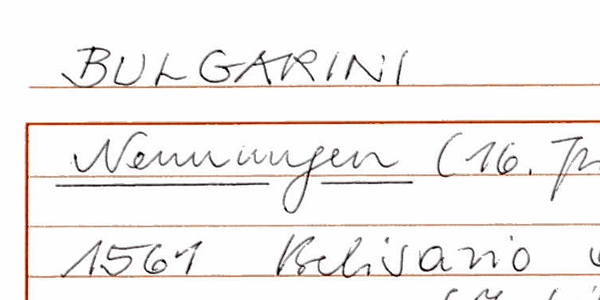 BULGARINI
Nennungen (16. Jh
1561 Belisario